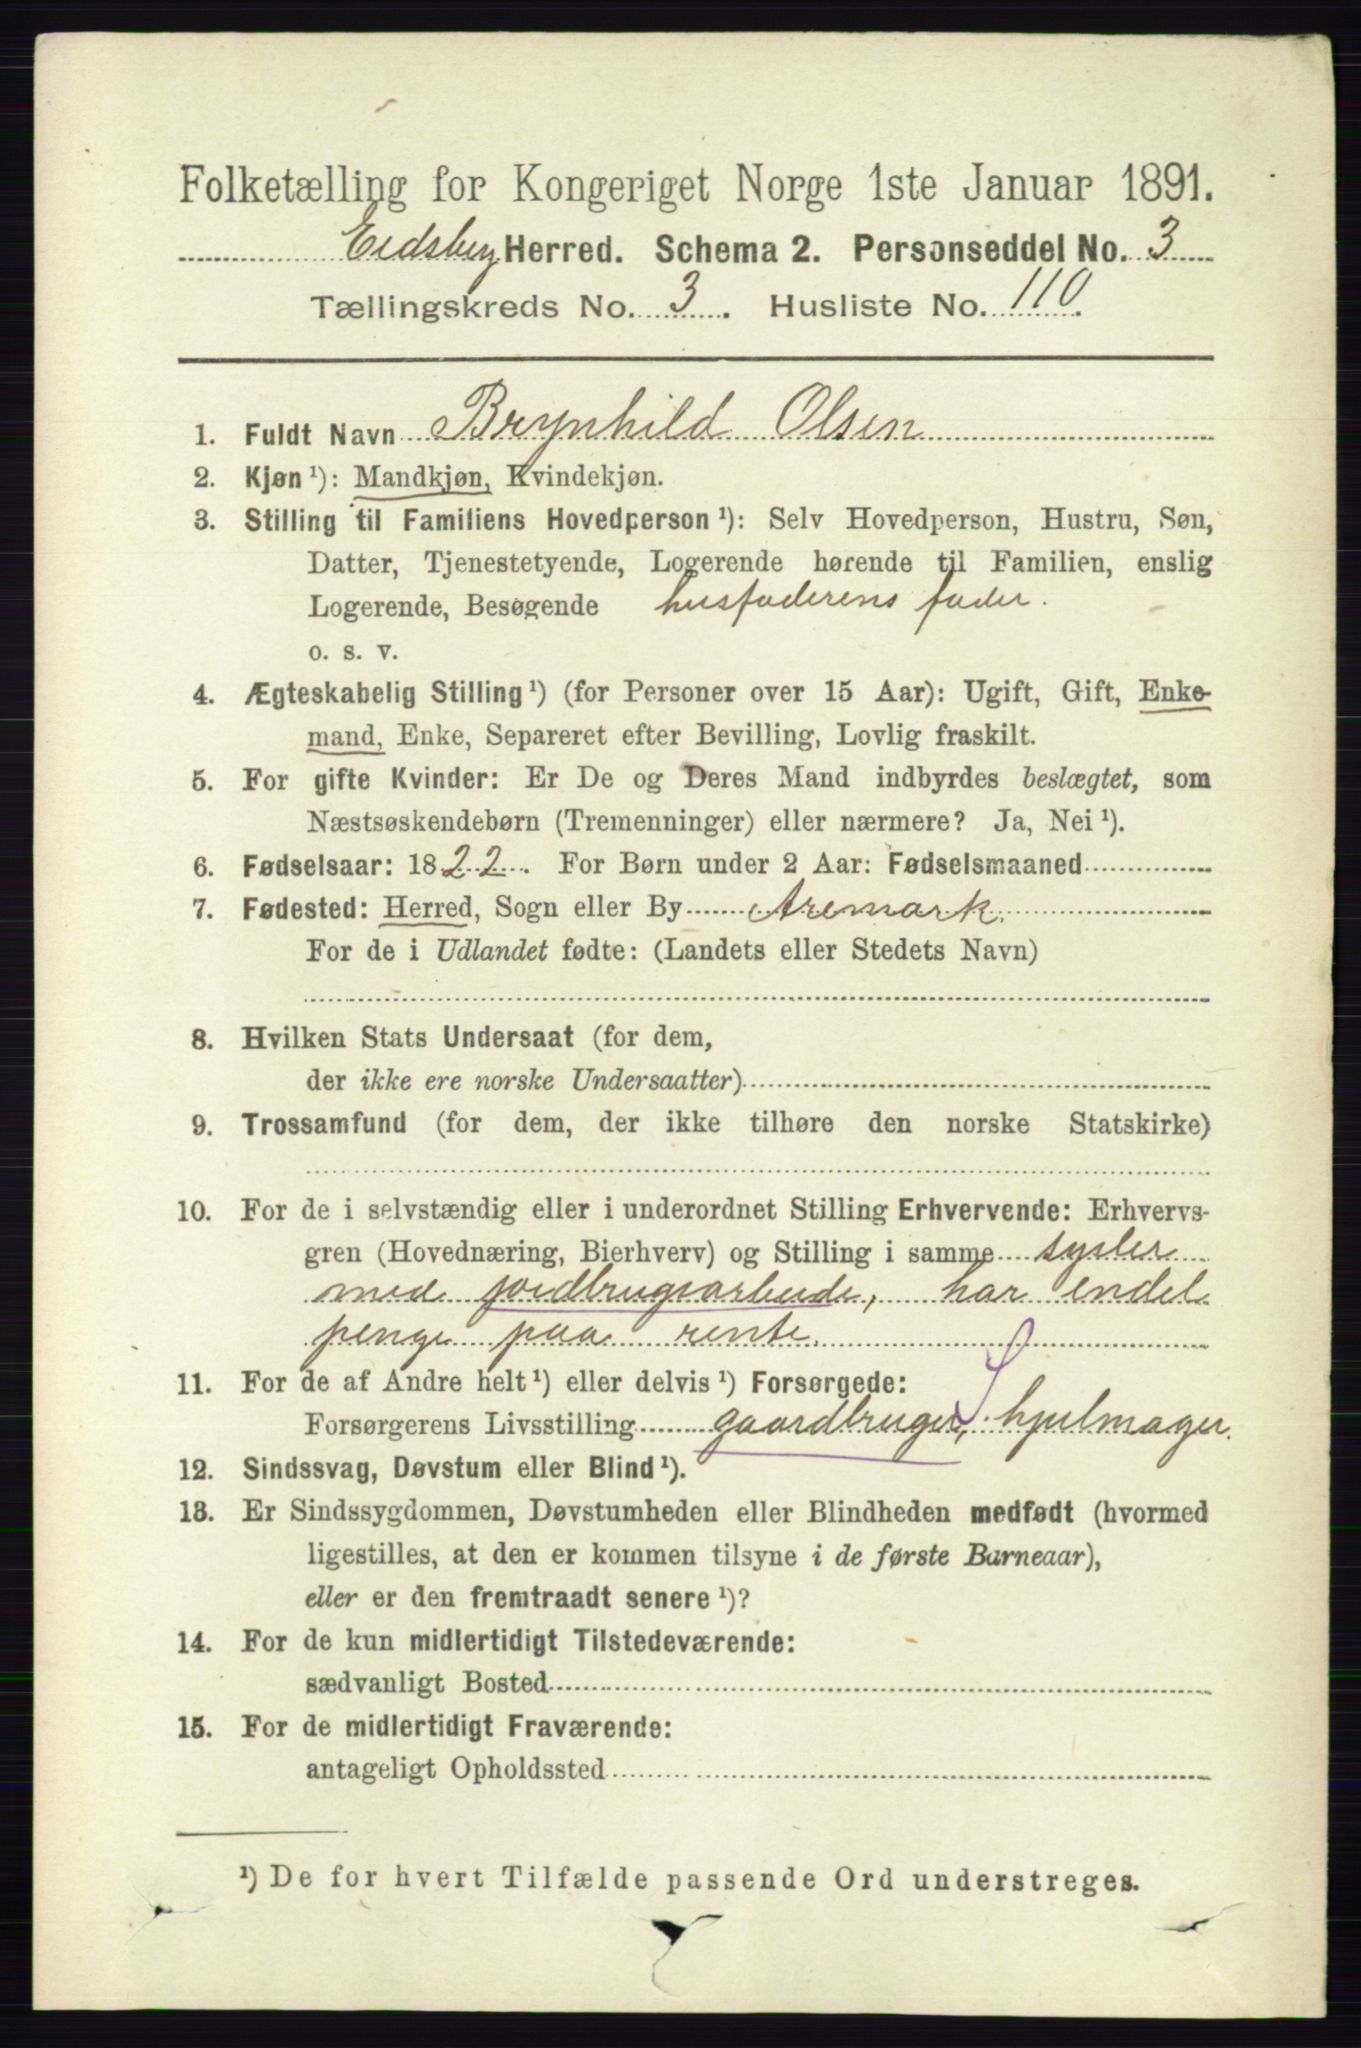 Folketælling for Kongeriget Norge 1ste Januar 1891.
Eidsberg Herred. Schema 2. Personseddel No. 3
Tællingskreds No. 3. Husliste No. 110.
1. Fuldt Navn Brynhild Olsen
2. Kjøn¹): Mandkjøn, Kvindekjøn.
3. Stilling til Familiens Hovedperson¹): Selv Hovedperson, Hustru, Søn,
Datter, Tjenestetyende, Logerende hørende til Familien, enslig
Logerende, Besøgende husfaderens fader.
o. s. v.
4. Ægteskabelig Stilling¹) (for Personer over 15 Aar): Ugift, Gift, Enke-
mand, Enke, Separeret efter Bevilling, Lovlig fraskilt.
5. For gifte Kvinder: Er De og Deres Mand indbyrdes beslægtet, som
Næstsøskendebørn (Tremenninger) eller nærmere? Ja, Nei¹).
6. Fødselsaar: 1822. For Børn under 2 Aar: Fødselsmaaned
7. Fødested: Herred, Sogn eller By Aremark.
For de i Udlandet fødte: (Landets eller Stedets Navn)
8. Hvilken Stats Undersaat (for dem,
der ikke ere norske Undersaatter)
9. Trossamfund (for dem, der ikke tilhøre den norske Statskirke)
10. For de i selvstændig eller i underordnet Stilling Erhvervende: Erhvervs-
gren (Hovednæring, Bierhverv) og Stilling i samme sysler
med jordbrugsarbeide, har endel
penge paa rente.
11. For de af Andre helt¹) eller delvis¹) Forsørgede:
Forsørgerens Livsstilling gaardbruger, hjulmager.
12. Sindssvag, Døvstum eller Blind¹).
13. Er Sindssygdommen, Døvstumheden eller Blindheden medfødt (hvormed
ligestilles, at den er kommen tilsyne i de første Barneaar),
eller er den fremtraadt senere¹)?
14. For de kun midlertidigt Tilstedeværende:
sædvanligt Bosted
15. For de midlertidigt Fraværende:
antageligt Opholdssted
¹) De for hvert Tilfælde passende Ord understreges.